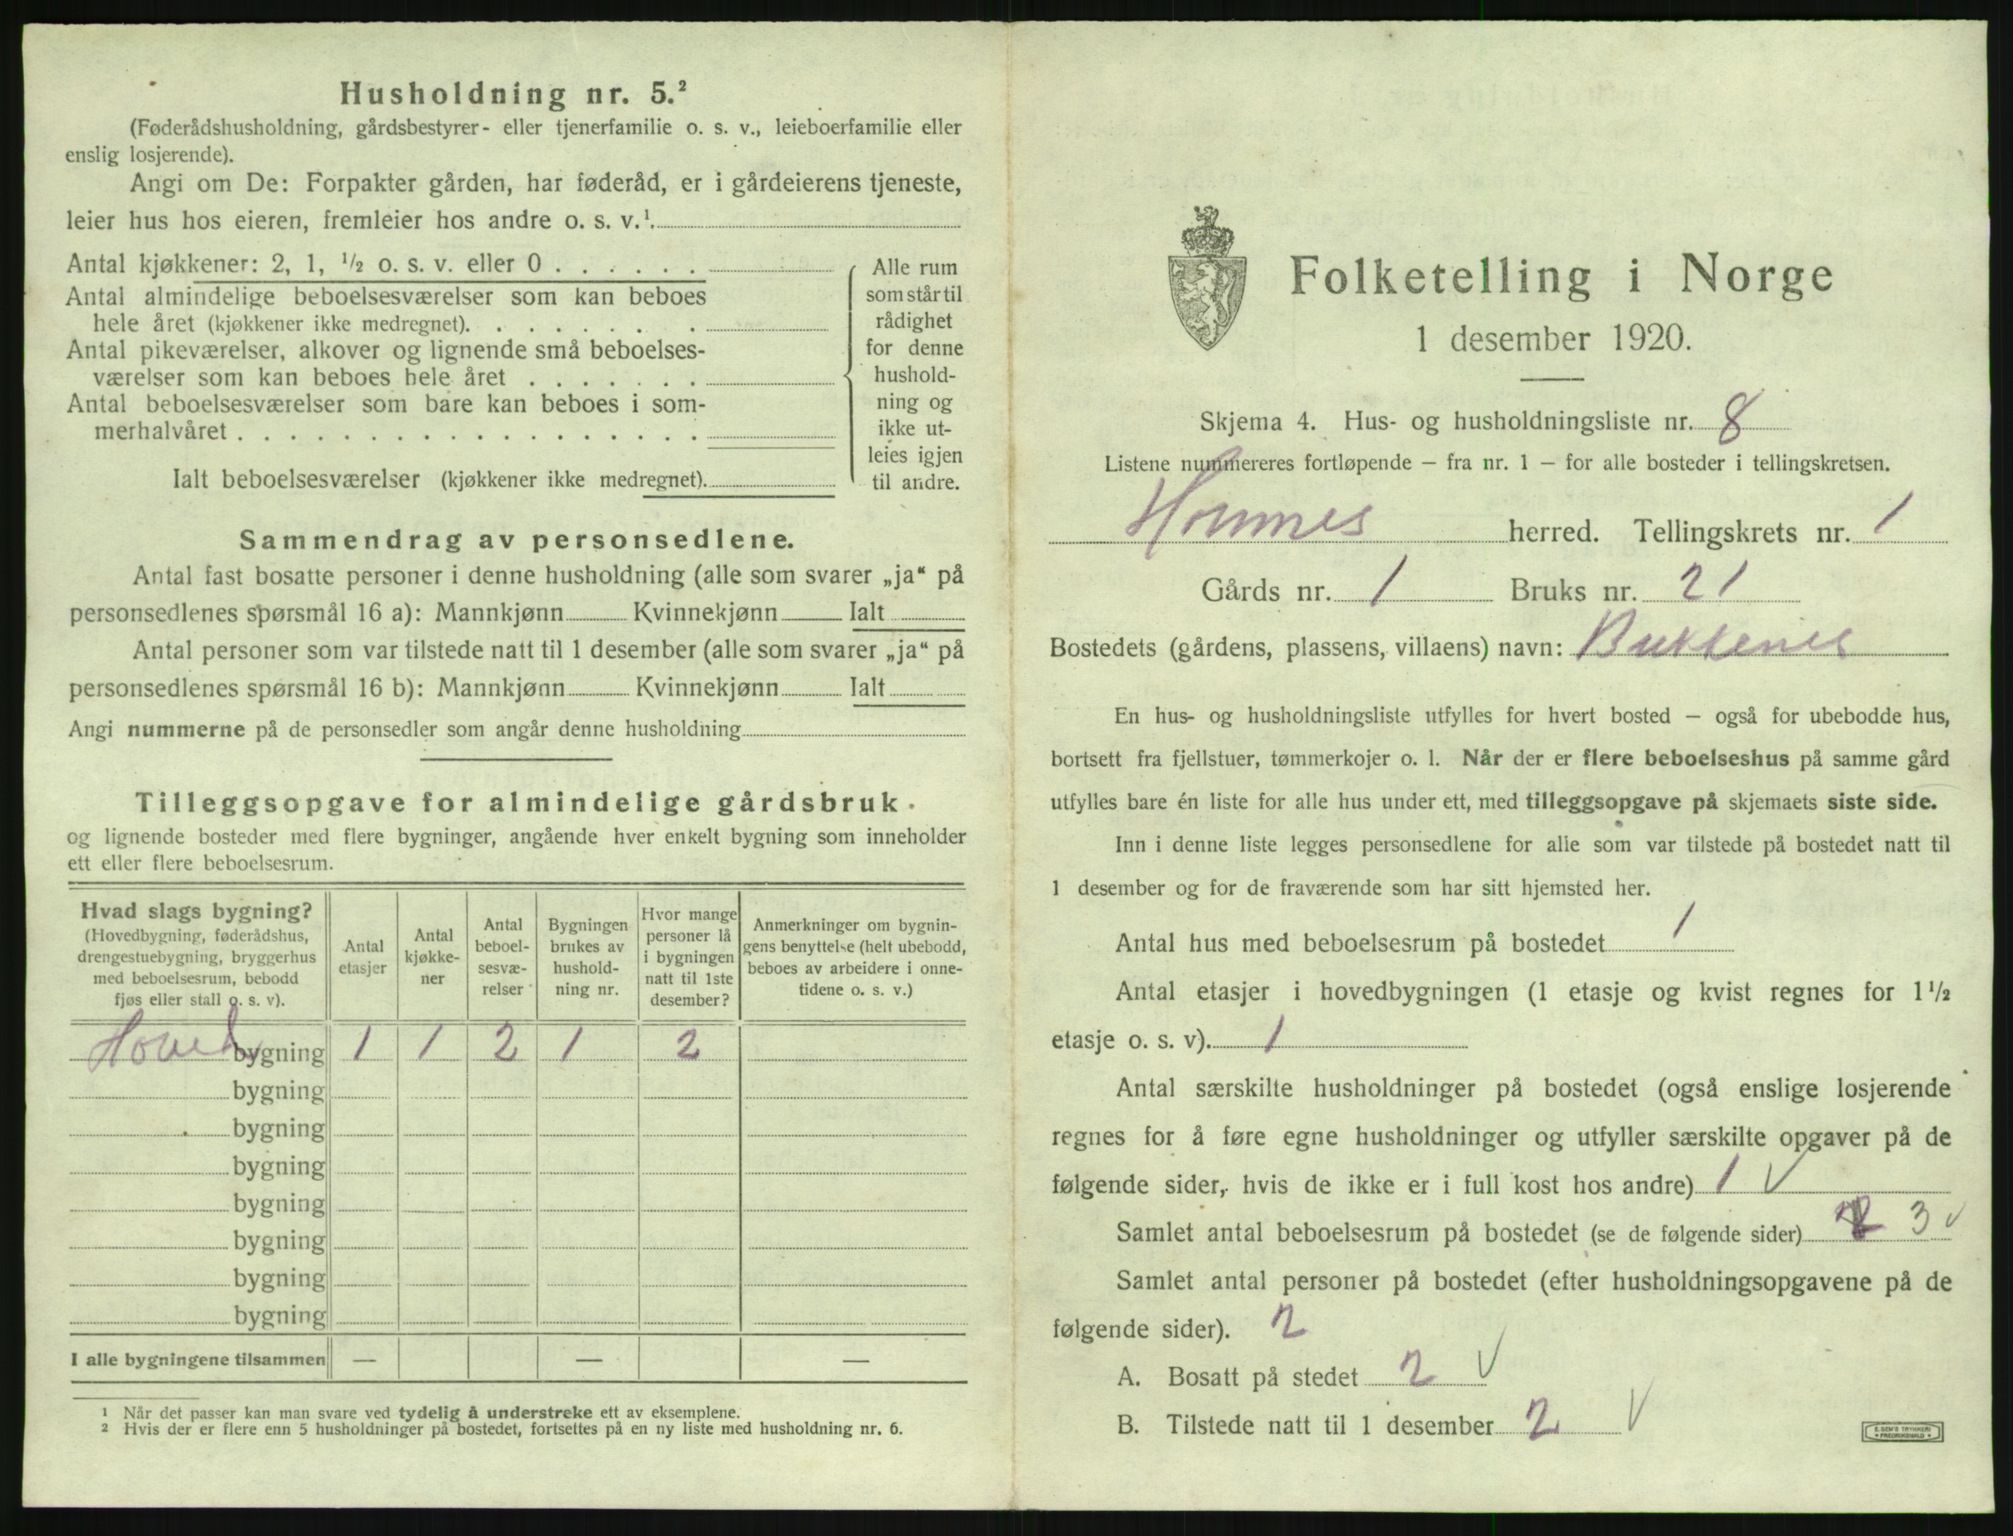 Husholdning nr. 5.²
(Føderådshusholdning, gårdsbestyrer- eller tjenerfamilie o. s. v., leieboerfamilie eller
enslig losjerende).
Angi om De: Forpakter gården, har føderåd, er i gårdeierens tjeneste,
leier hus hos eieren, fremleier hos andre o. s. v.¹.
Antal kjøkkener: 2, 1, ½ o. s. v. eller 0 . . . . . .
Antal almindelige beboelsesværelser som kan beboes
hele året (kjøkkener ikke medregnet). . . . . . . .
Antal pikeværelser, alkover og lignende små beboelses-
værelser som kan beboes hele året . . . . . . .
Antal beboelsesværelser som bare kan beboes i som-
merhalvåret . . . . . . . . . . . . . . . . . .
Ialt beboelsesværelser (kjøkkener ikke medregnet).
Alle rum
som står til
rådighet
for denne
hushold-
ning og
ikke ut-
leies igjen
til andre.
Sammendrag av personsedlene.
Antal fast bosatte personer i denne husholdning (alle som svarer „ja“ på
personsedlenes spørsmål 16 a): Mannkjønn Kvinnekjønn Ialt
Antal personer som var tilstede natt til 1 desember (alle som svarer „ja“ på
personsedlenes spørsmål 16 b): Mannkjønn Kvinnekjønn Ialt
Angi nummerne på de personsedler som angår denne husholdning
Tilleggsopgave for almindelige gårdsbruk
og lignende bosteder med flere bygninger, angående hver enkelt bygning som inneholder
ett eller flere beboelsesrum.
Hvad slags bygning?
(Hovedbygning, føderådshus,
drengestuebygning, bryggerhus
med beboelsesrum, bebodd
fjøs eller stall o. s. v).
Antal
etasjer
Antal
kjøkke-
ner
Antal
beboel-
sesvæ-
relser
Bygningen
brukes av
hushold-
ning nr.
Hvor mange
personer lå
i bygningen
natt til 1ste
desember?
Anmerkninger om bygnin-
gens benyttelse (helt ubebodd,
beboes av arbeidere i onne-
tidene o. s. v.)
Hoved bygning 1 1 2 1 2
bygning
bygning
bygning
bygning
bygning
bygning
bygning
I alle bygningene tilsammen — — —
¹ Når det passer kan man svare ved tydelig å understreke ett av eksemplene.
² Hvis der er flere enn 5 husholdninger på bostedet, fortsettes på en ny liste med husholdning nr. 6.
Folketelling i Norge
1 desember 1920.
Skjema 4. Hus- og husholdningsliste nr. 8
Listene nummereres fortløpende – fra nr. 1 – for alle bosteder i tellingskretsen.
Hommes herred. Tellingskrets nr. 1
Gårds nr. 1 Bruks nr. 21
Bostedets (gårdens, plassens, villaens) navn: Bukkenes
En hus- og husholdningsliste utfylles for hvert bosted – også for ubebodde hus,
bortsett fra fjellstuer, tømmerkojer o. l. Når der er flere beboelseshus på samme gård
utfylles bare én liste for alle hus under ett, med tilleggsopgave på skjemaets siste side.
Inn i denne liste legges personsedlene for alle som var tilstede på bostedet natt til
1 desember og for de fraværende som har sitt hjemsted her.
Antal hus med beboelsesrum på bostedet 1
Antal etasjer i hovedbygningen (1 etasje og kvist regnes for 1½
etasje o. s. v). 1
Antal særskilte husholdninger på bostedet (også enslige losjerende
regnes for å føre egne husholdninger og utfyller særskilte opgaver på de
følgende sider, hvis de ikke er i full kost hos andre) 1 √
Samlet antal beboelsesrum på bostedet (se de følgende sider) 3 √
Samlet antal personer på bostedet (efter husholdningsopgavene på de
følgende sider). 2
A. Bosatt på stedet 2 √
B. Tilstede natt til 1 desember 2 √